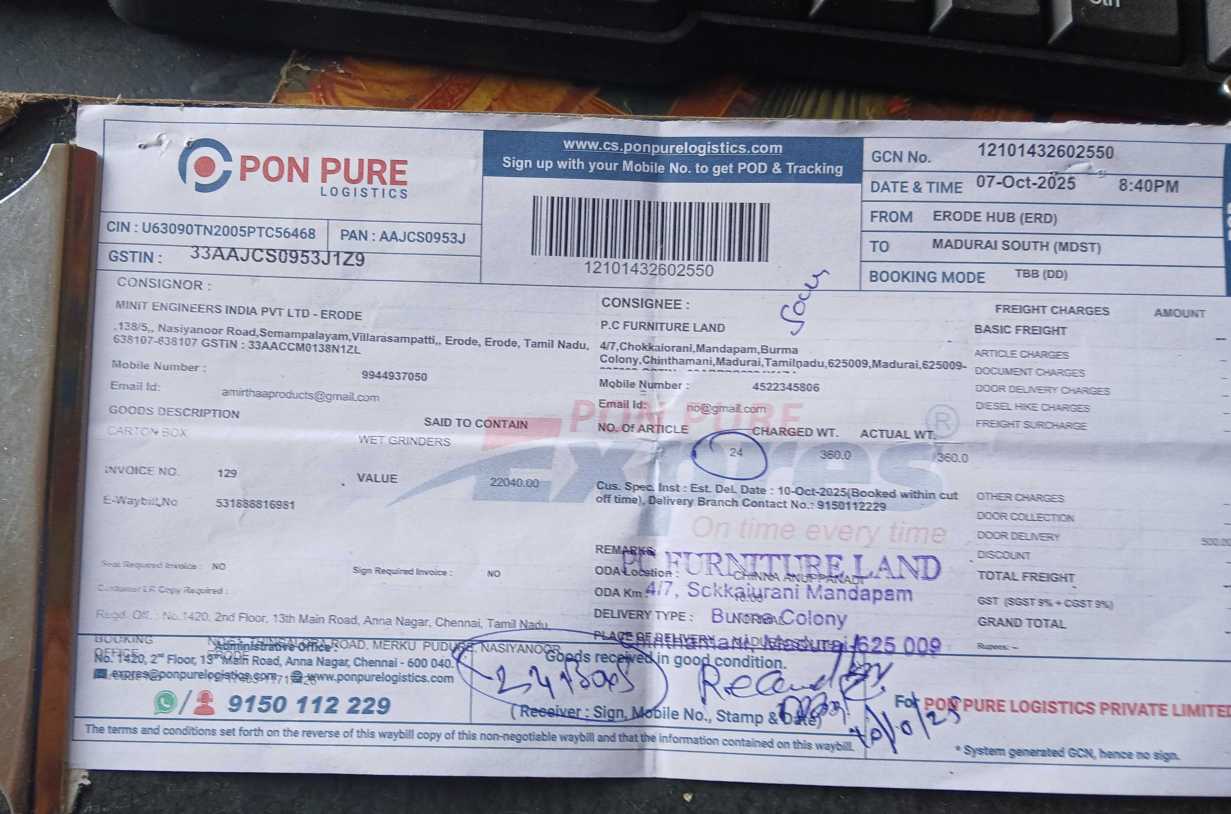 Ctrl
PON PURE
LOGISTICS
www.cs.ponpurelogistics.com
Sign up with your Mobile No. to get POD & Tracking
12101432602550
GCN No. 12101432602550
DATE & TIME 07-Oct-2025 8:40PM
FROM ERODE HUB (ERD)
TO MADURAI SOUTH (MDST)
BOOKING MODE TBB (DD)
CIN : U63090TN2005PTC56468 PAN : AAJCS0953J
GSTIN : 33AAJCS0953J1Z9
CONSIGNOR :
MINIT ENGINEERS INDIA PVT LTD - ERODE
,138/5,, Nasiyanoor Road,Semampalayam,Villarasampatti,, Erode, Erode, Tamil Nadu,
638107-638107 GSTIN : 33AACCM0138N1ZL
Mobile Number : 9944937050
Email Id: amirthaaproducts@gmail.com
GOODS DESCRIPTION SAID TO CONTAIN
CARTON BOX WET GRINDERS
INVOICE NO. 129 VALUE 22040.00
E-Waybill No 531888816981
Seal Required Invoice : NO Sign Required Invoice : NO
Customer LR Copy Required :
Regd. Off. : No.1420, 2nd Floor, 13th Main Road, Anna Nagar, Chennai, Tamil Nadu
CONSIGNEE :
P.C FURNITURE LAND
4/7,Chokkaiorani,Mandapam,Burma
Colony,Chinthamani,Madurai,Tamilpadu,625009,Madurai,625009-
Mobile Number : 4522345806
Email Id: no@gmail.com
PON PURE
Expres ®
On time every time
NO. Of ARTICLE CHARGED WT. ACTUAL WT.
24 360.0 360.0
Cus. Spec. Inst : Est. Del. Date : 10-Oct-2025(Booked within cut
off time), Delivery Branch Contact No.: 9150112229
REMARKS
ODA Location : CHINNA ANUPPANADI
ODA Km
DELIVERY TYPE :
PLACE OF DELIVERY
FURNITURE LAND
4/7, Sokkaiurani Mandapam
Burma Colony
Chinthamani, Madurai-625 009
FREIGHT CHARGES AMOUNT
BASIC FREIGHT
ARTICLE CHARGES
DOCUMENT CHARGES
DOOR DELIVERY CHARGES
DIESEL HIKE CHARGES
FREIGHT SURCHARGE
OTHER CHARGES
DOOR COLLECTION
DOOR DELIVERY 500.00
DISCOUNT
TOTAL FREIGHT
GST (SGST 9% + CGST 9%)
GRAND TOTAL
Rupees: –
BOOKING
OFFICE
ROAD, MERKU PUDUR, NASIYANOOR
Administrative Office :
No. 1420, 2nd Floor, 13th Main Road, Anna Nagar, Chennai - 600 040.
expres@ponpurelogistics.com www.ponpurelogistics.com
9150 112 229
Goods received in good condition.
24
(Receiver : Sign, Mobile No., Stamp & Date)
For PON PURE LOGISTICS PRIVATE LIMITED
The terms and conditions set forth on the reverse of this waybill copy of this non-negotiable waybill and that the information contained on this waybill.
* System generated GCN, hence no sign.